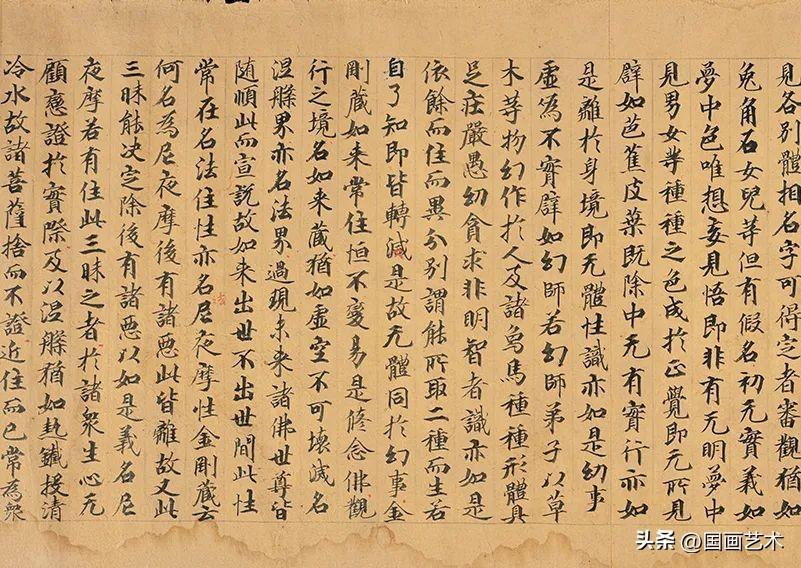 見各別體相名字可得定者審觀猶如
兔角石女兒等但有假名初无實義如
夢中色唯想妄見悟即非有无明夢中
見男女等種種之色成於正覺即无所見
譬如芭蕉皮葉既除中无有實行亦如
是離於身境即无體性識亦如是幻事
虛為不實譬如幻師若幻師弟子以草
木等物幻作於人及諸鳥馬種種形體具
足莊嚴愚幼貪求非明智者識亦如是
依餘而住而異分別謂能所取二種而生若
自了知即皆轉滅是故无體同於幻事金
剛藏如来常住恒不變易是脩念佛觀
行之境名如来藏猶如虛空不可壞滅名
涅槃界亦名法界過現未来諸佛世尊皆
随順此而宣說故如来出世不出世間此性
常在名法住性亦名尼夜摩性金剛藏云
何名為尼夜摩後有諸惡此皆離故又此
三昧能决定除後有諸惡以如是義名尼
夜摩若有住此三昧之者於諸衆生心无
顧戀證於實際及以涅槃猶如熱鐵投清
冷水故諸菩薩捨而不證近住而已常為衆
头条 @国画艺术